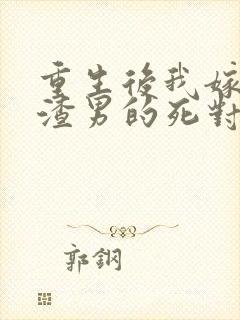 重生後我嫁
渣男的死對
郭鋼